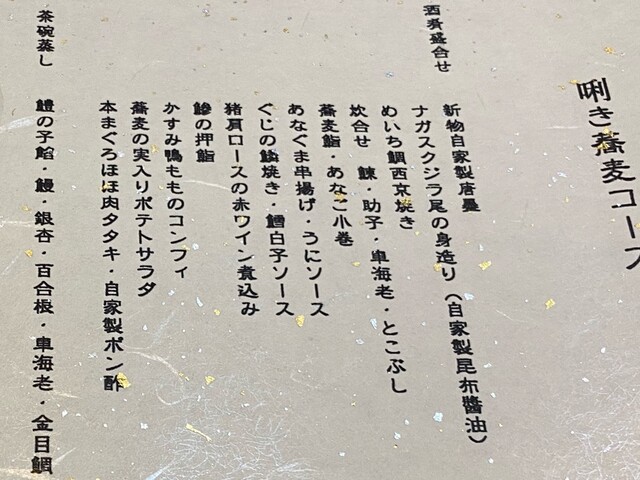 唎き蕎麦コース
酒肴盛合せ
新物自家製唐墨
ナガスクジラ尾の身造り(自家製昆布醬油)
めいち鯛西京焼き
炊合せ 鰊・助子・車海老・とこぶし
蕎麦鮨・あなご小巻
あなぐま串揚げ・うにソース
ぐじの鱗焼き・鱈白子ソース
猪肩ロースの赤ワイン煮込み
鰺の押鮨
かすみ鴨もものコンフィ
蕎麦の実入りポテトサラダ
本まぐろほほ肉タタキ・自家製ポン酢
茶碗蒸し
鱧の子餡・鰻・銀杏・百合根・車海老・金目鯛